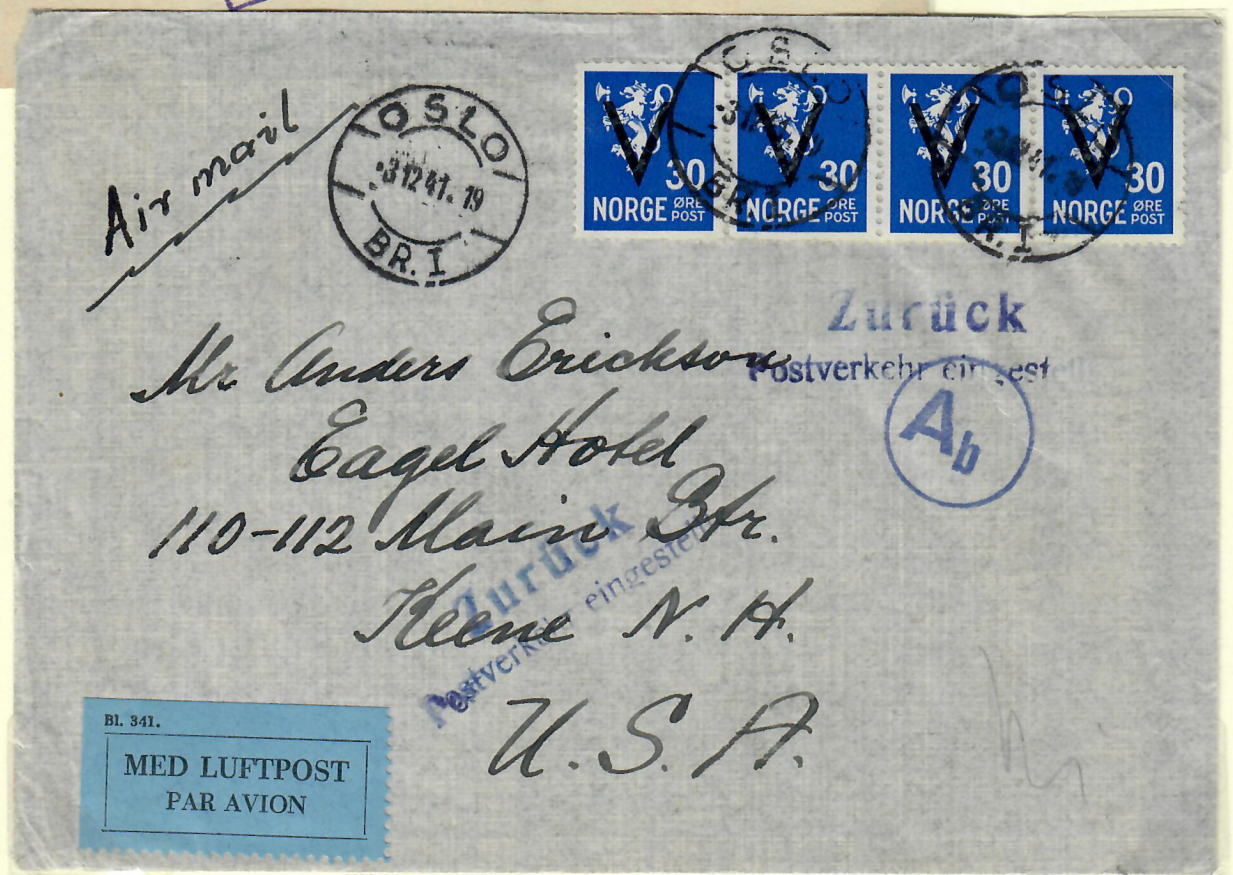 Air mail
OSLO
-3 12 41. 19
BR. I
OSLO
BR. I
OSLO
BR. I
V
30
NORGE ØRE POST
V
30
NORGE ØRE POST
V
30
NORGE ØRE POST
V
30
NORGE ØRE POST
Zurück
Postverkehr eingestellt
Ab
Mr Anders Erickson
Eagel Hotel
110-112 Main Str.
Keene N. H.
U. S. A.
Zurück
Postverkehr eingestellt
Bl. 341.
MED LUFTPOST
PAR AVION